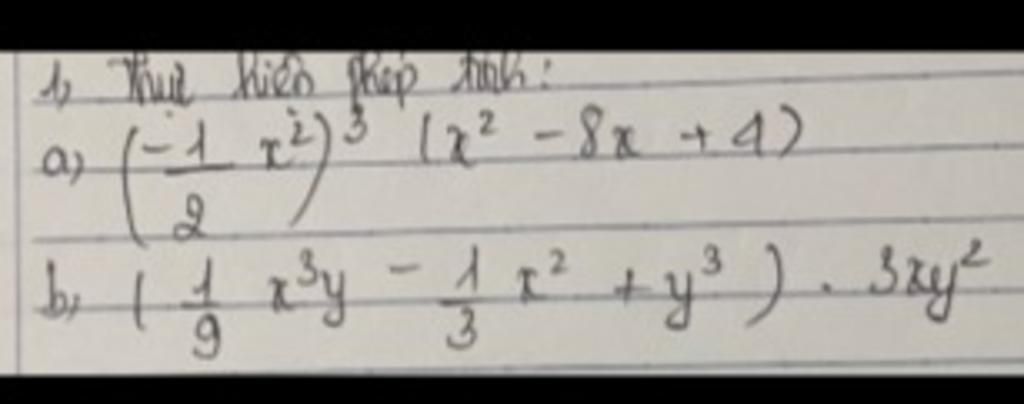 1, Thực hiện phép tính:
a) (-1/2 x²)³ (x² - 8x + 4)
b, (1/9 x³y - 1/3 x² + y³) . 3xy²